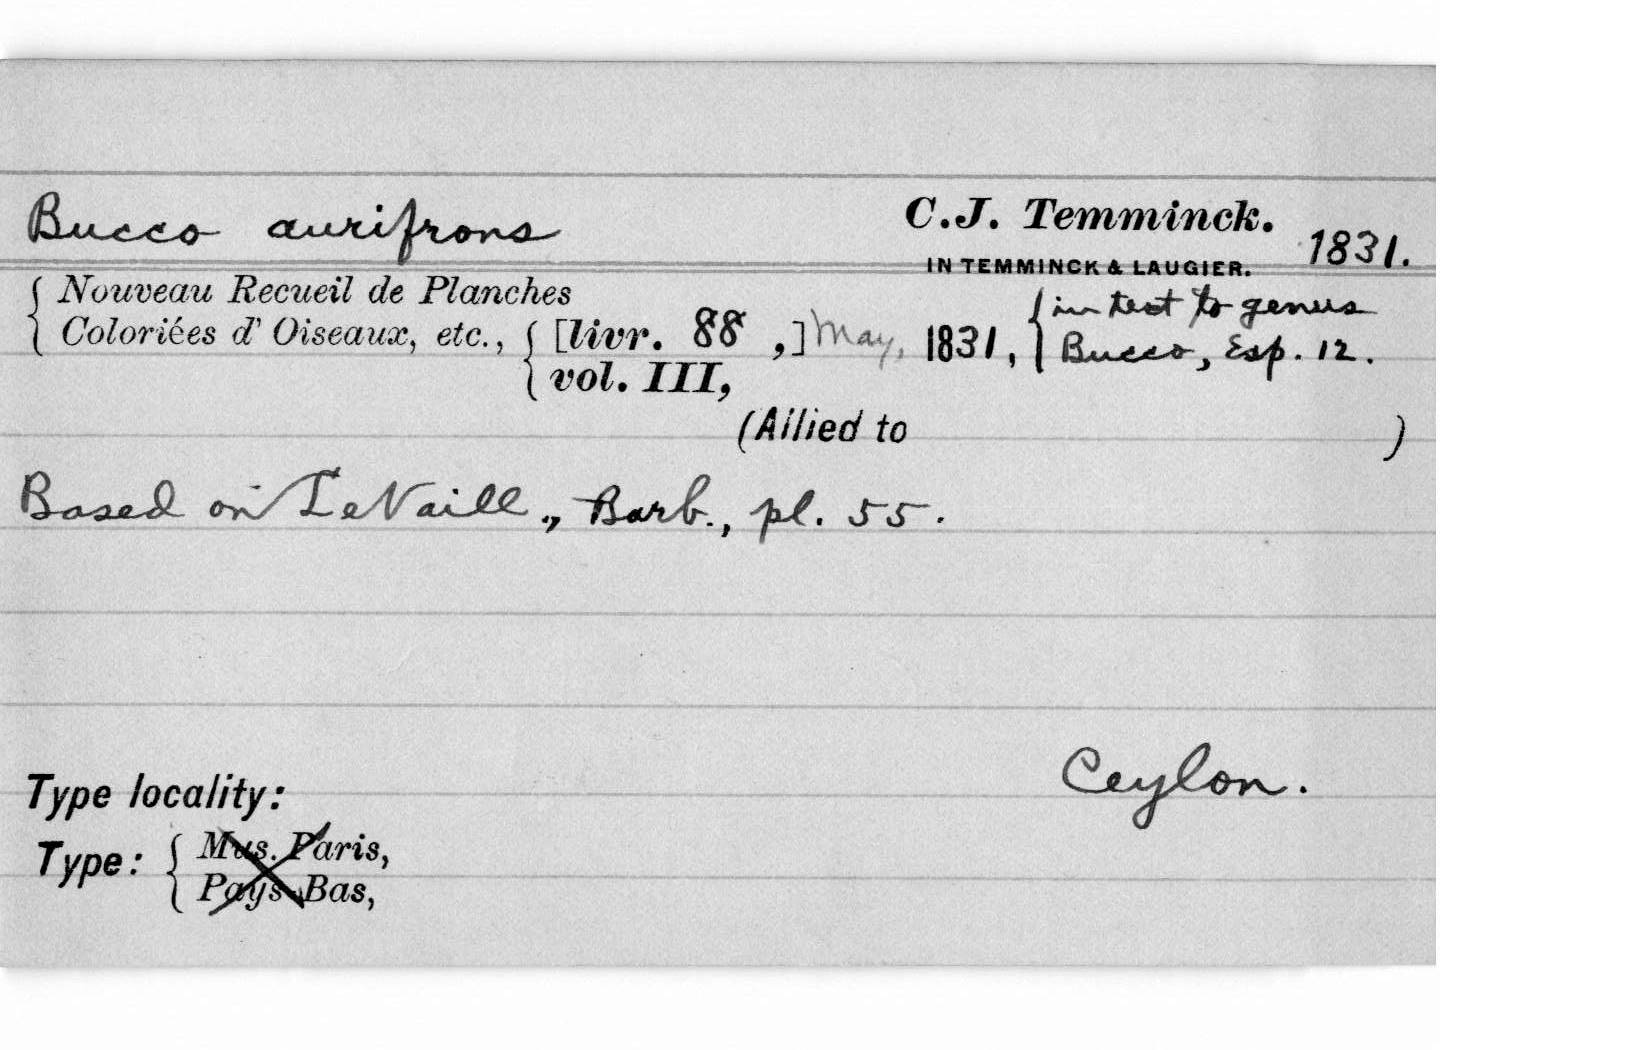 Bucco aurifrons C.J. Temminck. 1831.
IN TEMMINCK & LAUGIER.
Nouveau Recueil de Planches
Coloriées d' Oiseaux, etc., [livr. 88 ,] May, 1831, in text to genus
vol. III, Bucco, Esp. 12.
(Allied to )
Based on LeVaill., Barb., pl. 55.
Type locality: Ceylon.
Type: Mus. Paris,
Pays-Bas,